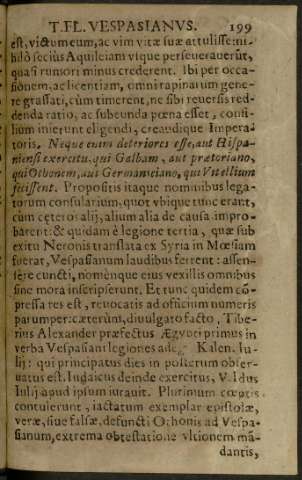 T. FL. VESPASIANVS. 199
est, victum eum, ac vim vitæ suæ attulisse: ni-
hilo secius Aquileiam vsque perseuerauerūt,
quasi rumori minus crederent. Ibi per occa-
sionem, ac licentiam, omni rapinarum gene-
re grassati, cùm timerent, ne sibi reuersis red-
denda ratio, ac subeunda pœna esset, consi-
lium inierunt eligendi, creandique Impera-
toris. Neque enim deteriores esse, aut Hispa-
niensi exercitu, qui Galbam, aut prætoriano,
qui Othonem, aut Germaniciano, qui Vitellium
fecissent. Propositis itaque nominibus lega-
torum consularium, quot vbique tunc erant,
cùm ceteros alij, alium alia de causa impro-
barent: & quidam è legione tertia, quæ sub
exitu Neronis translata ex Syria in Mœsiam
fuerat, Vespasianum laudibus ferrent: assen-
sere cuncti, noménque eius vexillis omnibus
sine mora inscripserunt. Et tunc quidem cō-
pressa res est, reuocatis ad officium numeris
parumper: cæterùm, diuulgato facto, Tibe-
rius Alexander præfectus Ægypti primus in
verba Vespasiani legiones ade Kalen. Iu-
lij: qui principatus dies in posterum obser-
uatus est. Iudaicus deinde exercitus, V. Idus
Iulij apud ipsum iurauit. Plurimum cœptis
contulerunt, iactatum exemplar epistolæ,
veræ, siue falsæ, defuncti Othonis ad Vespa-
sianum, extrema obtestatione vltionem mā-
dantis,